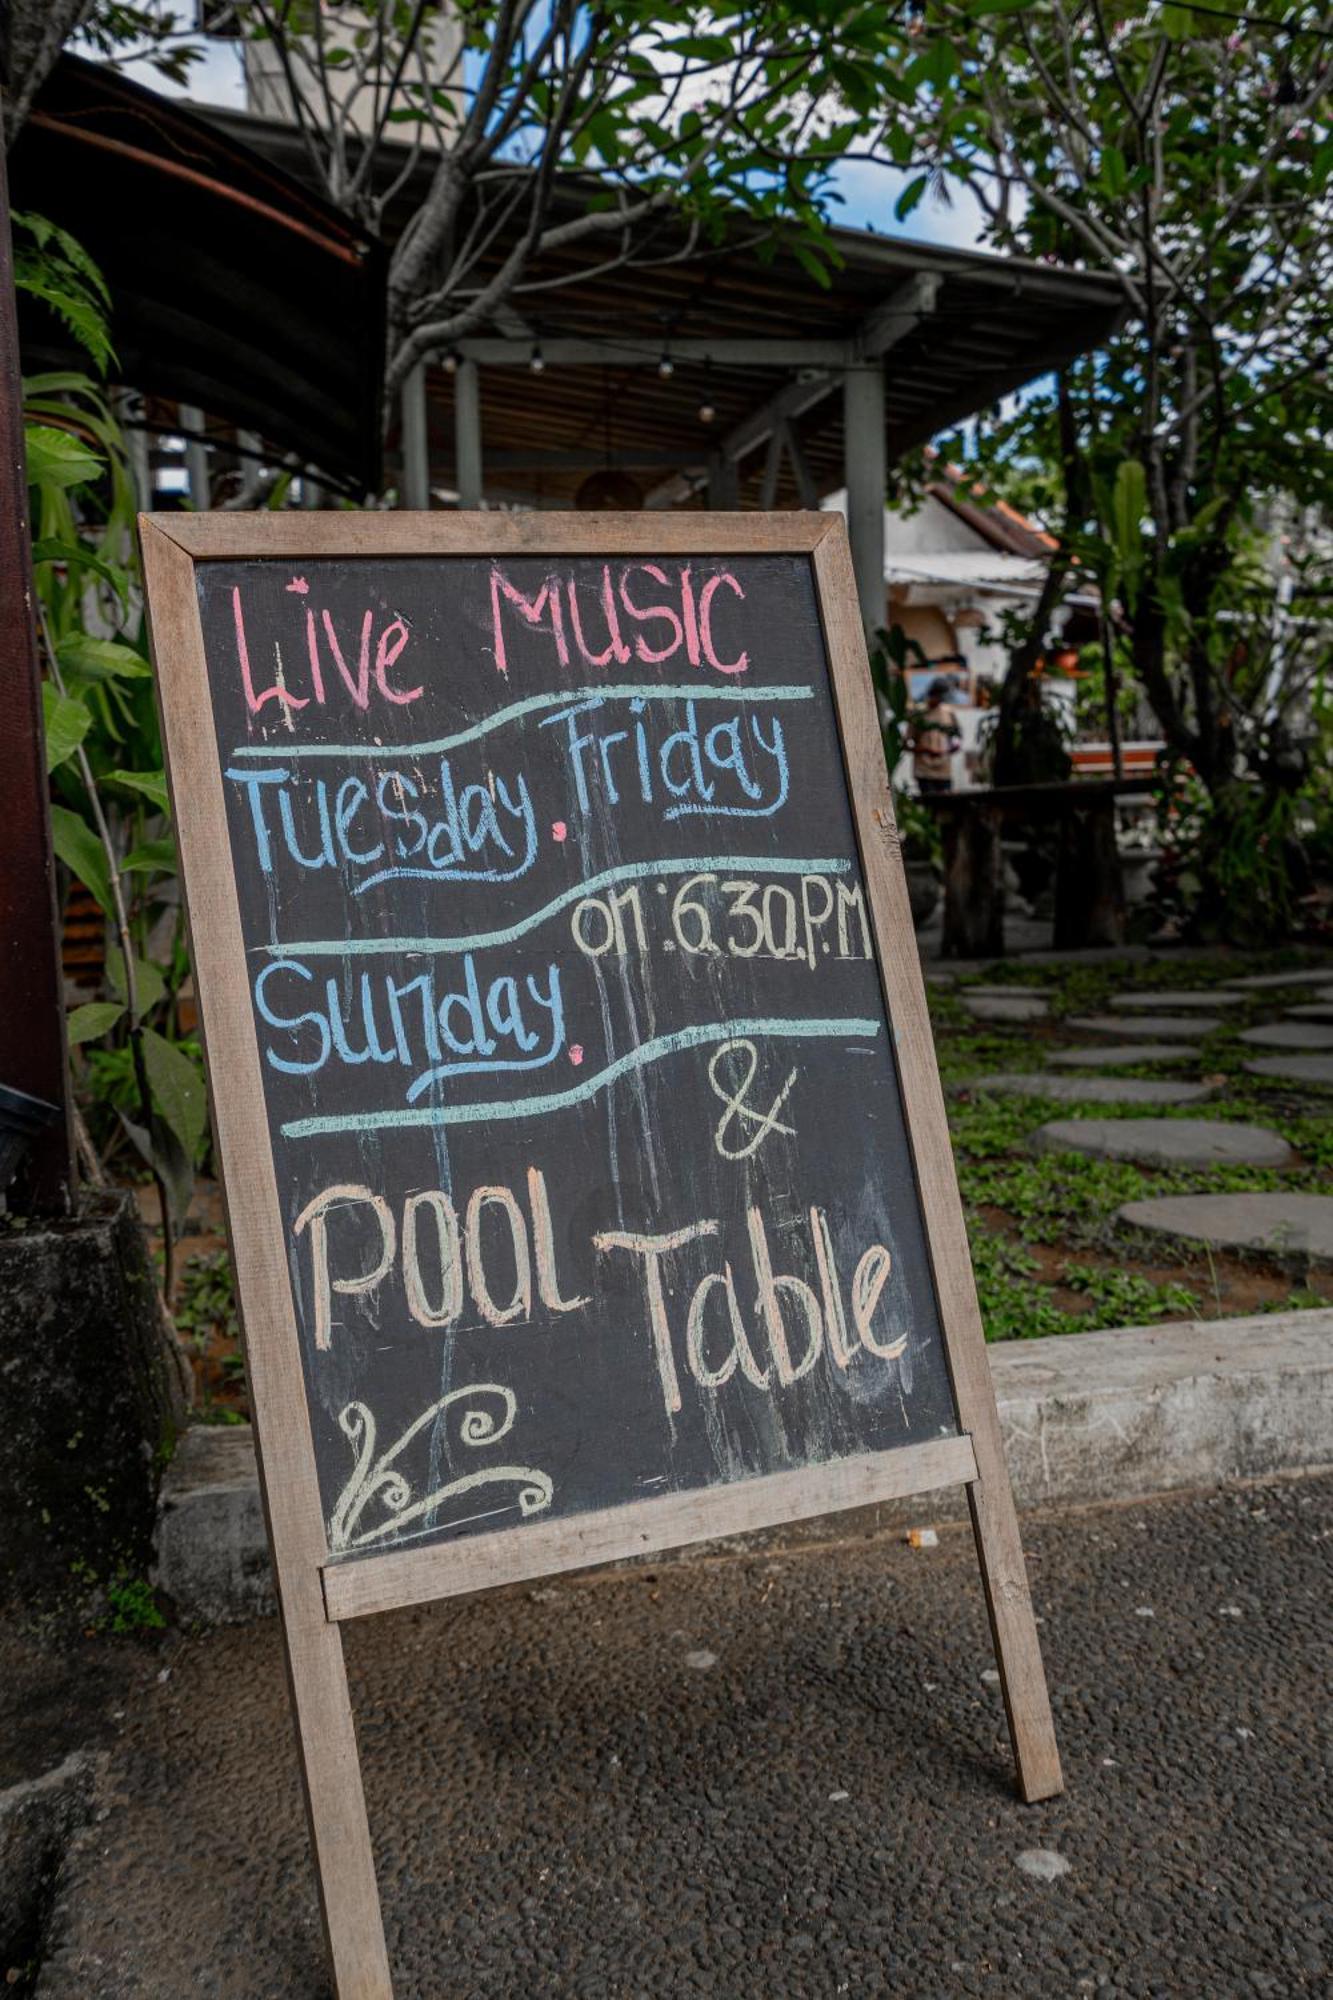 Live MUSIC
Tuesday. Friday
on:6.30.P.M
Sunday.
&
POOL Table